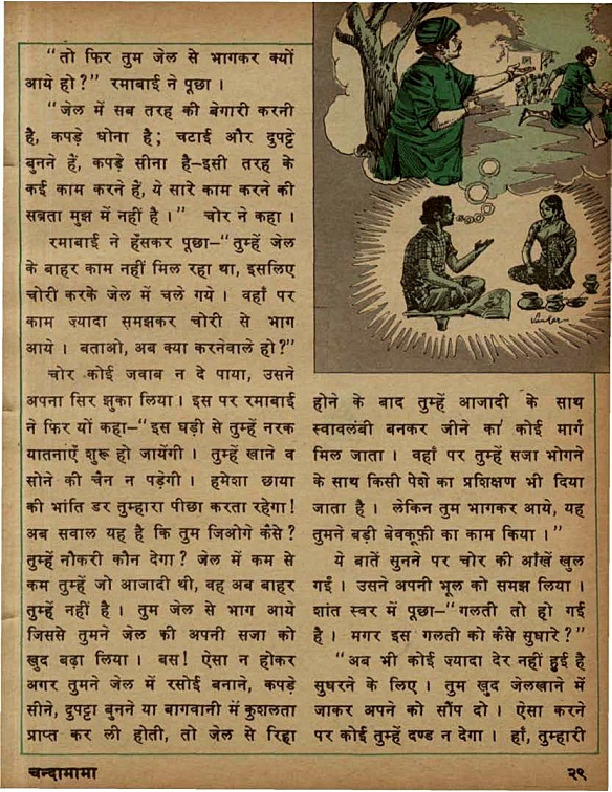 “तो फिर तुम जेल से भागकर क्यों
आये हो?” रमाबाई ने पूछा ।
“जेल में सब तरह की बेगारी करनी
है, कपड़े धोना है; चटाई और दुपट्टे
बुनने हें, कपड़े सीना है–इसी तरह के
कई काम करने हें, ये सारे काम करने की
सब्रता मुझ में नहीं है ।” चोर ने कहा ।
रमाबाई ने हँसकर पूछा–“तुम्हें जेल
के बाहर काम नहीं मिल रहा था, इसलिए
चोरी करके जेल में चले गये । वहाँ पर
काम ज्यादा समझकर चोरी से भाग
आये । बताओ, अब क्या करनेवाले हो?”
चोर कोई जवाब न दे पाया, उसने
अपना सिर झुका लिया । इस पर रमाबाई
ने फिर यों कहा–“इस घड़ी से तुम्हें नरक
यातनाएँ शुरू हो जायेंगी । तुम्हें खाने व
सोने की चैन न पड़ेगी । हमेशा छाया
की भांति डर तुम्हारा पीछा करता रहेगा!
अब सवाल यह है कि तुम जिओगे कैसे?
तुम्हें नौकरी कौन देगा? जेल में कम से
कम तुम्हें जो आजादी थी, वह अब बाहर
तुम्हें नहीं है । तुम जेल से भाग आये
जिससे तुमने जेल की अपनी सजा को
खुद बढ़ा लिया । बस! ऐसा न होकर
अगर तुमने जेल में रसोई बनाने, कपड़े
सीने, दुपट्टा बुनने या बागवानी में कुशलता
प्राप्त कर ली होती, तो जेल से रिहा
होने के बाद तुम्हें आजादी के साथ
स्वावलंबी बनकर जीने का कोई मार्ग
मिल जाता । वहाँ पर तुम्हें सजा भोगने
के साथ किसी पेशे का प्रशिक्षण भी दिया
जाता है । लेकिन तुम भागकर आये, यह
तुमने बड़ी बेवकूफ़ी का काम किया ।”
ये बातें सुनने पर चोर की आँखें खुल
गईं । उसने अपनी भूल को समझ लिया ।
शांत स्वर में पूछा–“गलती तो हो गई
है । मगर इस गलती को कैसे सुधारे?”
“अब भी कोई ज्यादा देर नहीं हुई है
सुधरने के लिए । तुम खुद जेलखाने में
जाकर अपने को सौंप दो । ऐसा करने
पर कोई तुम्हें दण्ड न देगा । हाँ, तुम्हारी
चन्दामामा
२९